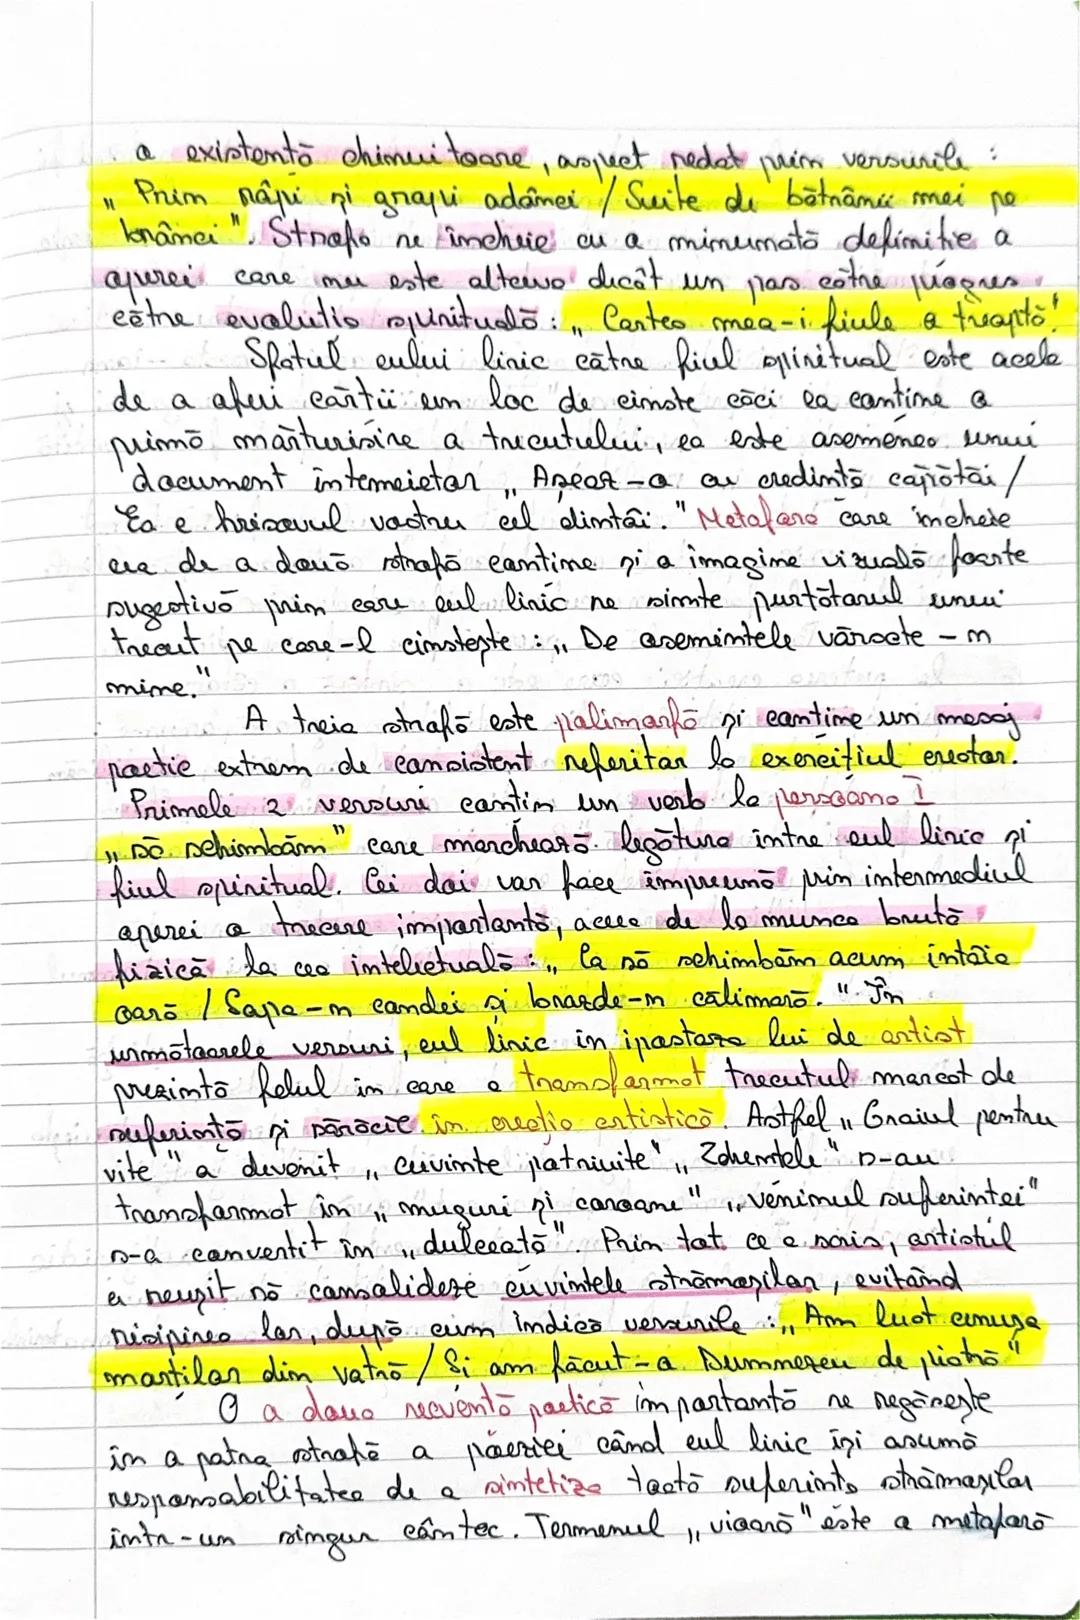 o existență chinuitoare, aspect redat prin versurile :
„Prin râpi și gropi adânci / Suite de bătrânii mei pe
brânci". Strofa se încheie cu o minunată definiție a
operei care nu este altceva decât un pas către progres
către evoluția spirituală : „Cartea mea-i fiule o treaptă".
Sfatul eului liric către fiul spiritual este acela
de a oferi cărții un loc de cinste căci ea conține o
primă mărturisire a trecutului, ea este asemenea unui
document întemeietor „Așeaz-o cu credință căpătâi /
Ea e hrisovul vostru cel dintâi." Metafora care încheie
cea de a doua strofă conține și o imagine vizuală foarte
sugestivă prin care eul liric se simte purtătorul unui
trecut pe care-l cinstește : „De osemintele vărsate-n
mine."
A treia strofă este polimorfă și conține un mesaj
poetic extrem de consistent referitor la exercițiul creator.
Primele 2 versuri conțin un verb la persoana I
„să schimbăm" care marchează legătura între eul liric și
fiul spiritual. Cei doi vor face împreună prin intermediul
operei o trecere importantă, aceea de la munca brută
fizică la cea intelectuală : „Ca să schimbăm acum întâia
oară / Sapa-n condei și brazda-n călimară." În
următoarele versuri, eul liric în ipostaza lui de artist
prezintă felul în care a transformat trecutul marcat de
suferință și sărăcie în creație artistică. Astfel „Graiul pentru
vite" a devenit „cuvinte potrivite" „Zdrențele" s-au
transformat în „muguri și coroane" „veninul suferinței"
s-a convertit în „dulceață". Prin tot ce a scris, artistul
a reușit să consolideze cuvintele strămoșilor, evitând
risipirea lor, după cum indică versurile : „Am luat cenușa
morților din vatră / Și am făcut-o Dumnezeu de piatră"
O a doua secvență poetică importantă se regăsește
în a patra strofă a poeziei când eul liric își asumă
responsabilitatea de a sintetiza toată suferința strămoșilor
într-un singur cântec. Termenul „vioară" este o metaforă